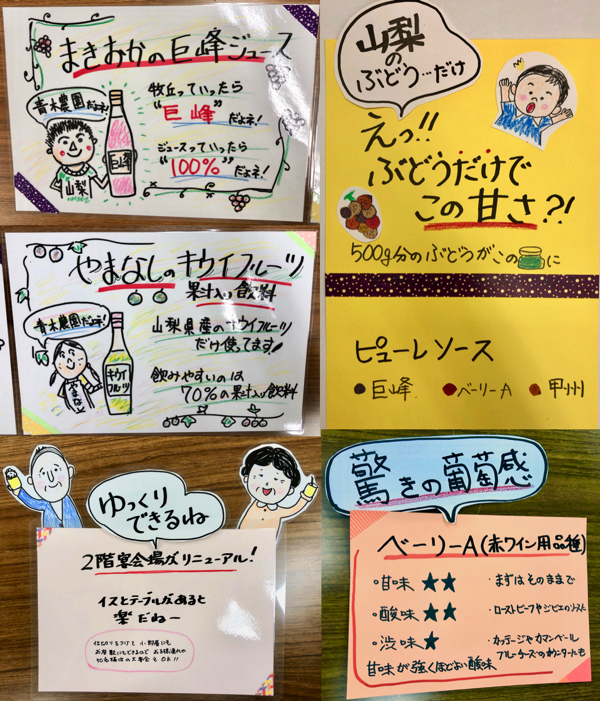 まきおかの巨峰ジュース
青木農園だよネ!
牧丘っていったら
"巨峰"だよネ!
ジュースっていったら
"100%"だよネ!
巨峰
山梨
やまなしのキウイフルーツ
果汁入り飲料
青木農園だよネ!
山梨県産のキウイフルーツ
だけ使ってます!
飲みやすいのは
70%の果汁入り飲料
キウイ
フルーツ
やまなし
山梨
の
ぶどう…だけ
えっ!!
ぶどうだけで
この甘さ?!
500g分のぶどうがこの
に
ピューレソース
巨峰
ベーリーA
甲州
ゆっくり
できるね
2階宴会場がリニューアル!
イスとテーブルがあると
楽だねー
仕切りをつけて小部屋にも
お座敷にもできるので お子様連れや
大宴会もOK!!
驚きの葡萄感
ベーリーA(赤ワイン用品種)
・甘味 ★★
・まずはそのままで
・酸味 ★★
・ローストビーフやジビエのソースに
・渋味 ★
・カッテージやカマンベール
ブルーチーズの
甘味が強くほどよい酸味